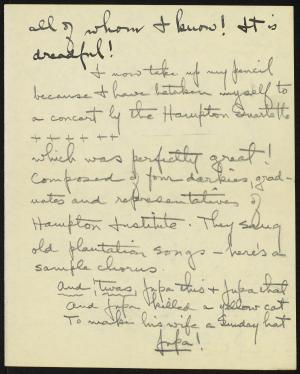 all of whom I know! It is
dreadful!
I now take up my pencil
because I have betaken myself to
a concert by the Hampton Quartette
+ + + + + +
which was perfectly great!
Composed of four darkies, grad-
uates and representatives of
Hampton Institute. They sang
old plantation songs – here's a
sample chorus.
And 'twas, Jupa this & Jupa that
And Jupa killed a yellow cat
To make his wife a Sunday hat
Jupa!